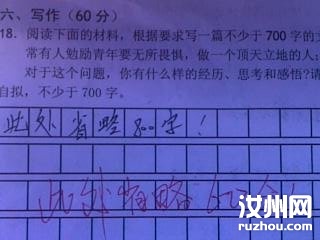 六、写作（60 分）
18. 阅读下面的材料，根据要求写一篇不少于 700 字的文
常有人勉励青年要无所畏惧，做一个顶天立地的人；
对于这个问题，你有什么样的经历、思考和感悟？请
自拟，不少于 700 字。
此处省略800字！
此外省略
汝州网
ruzhou.com